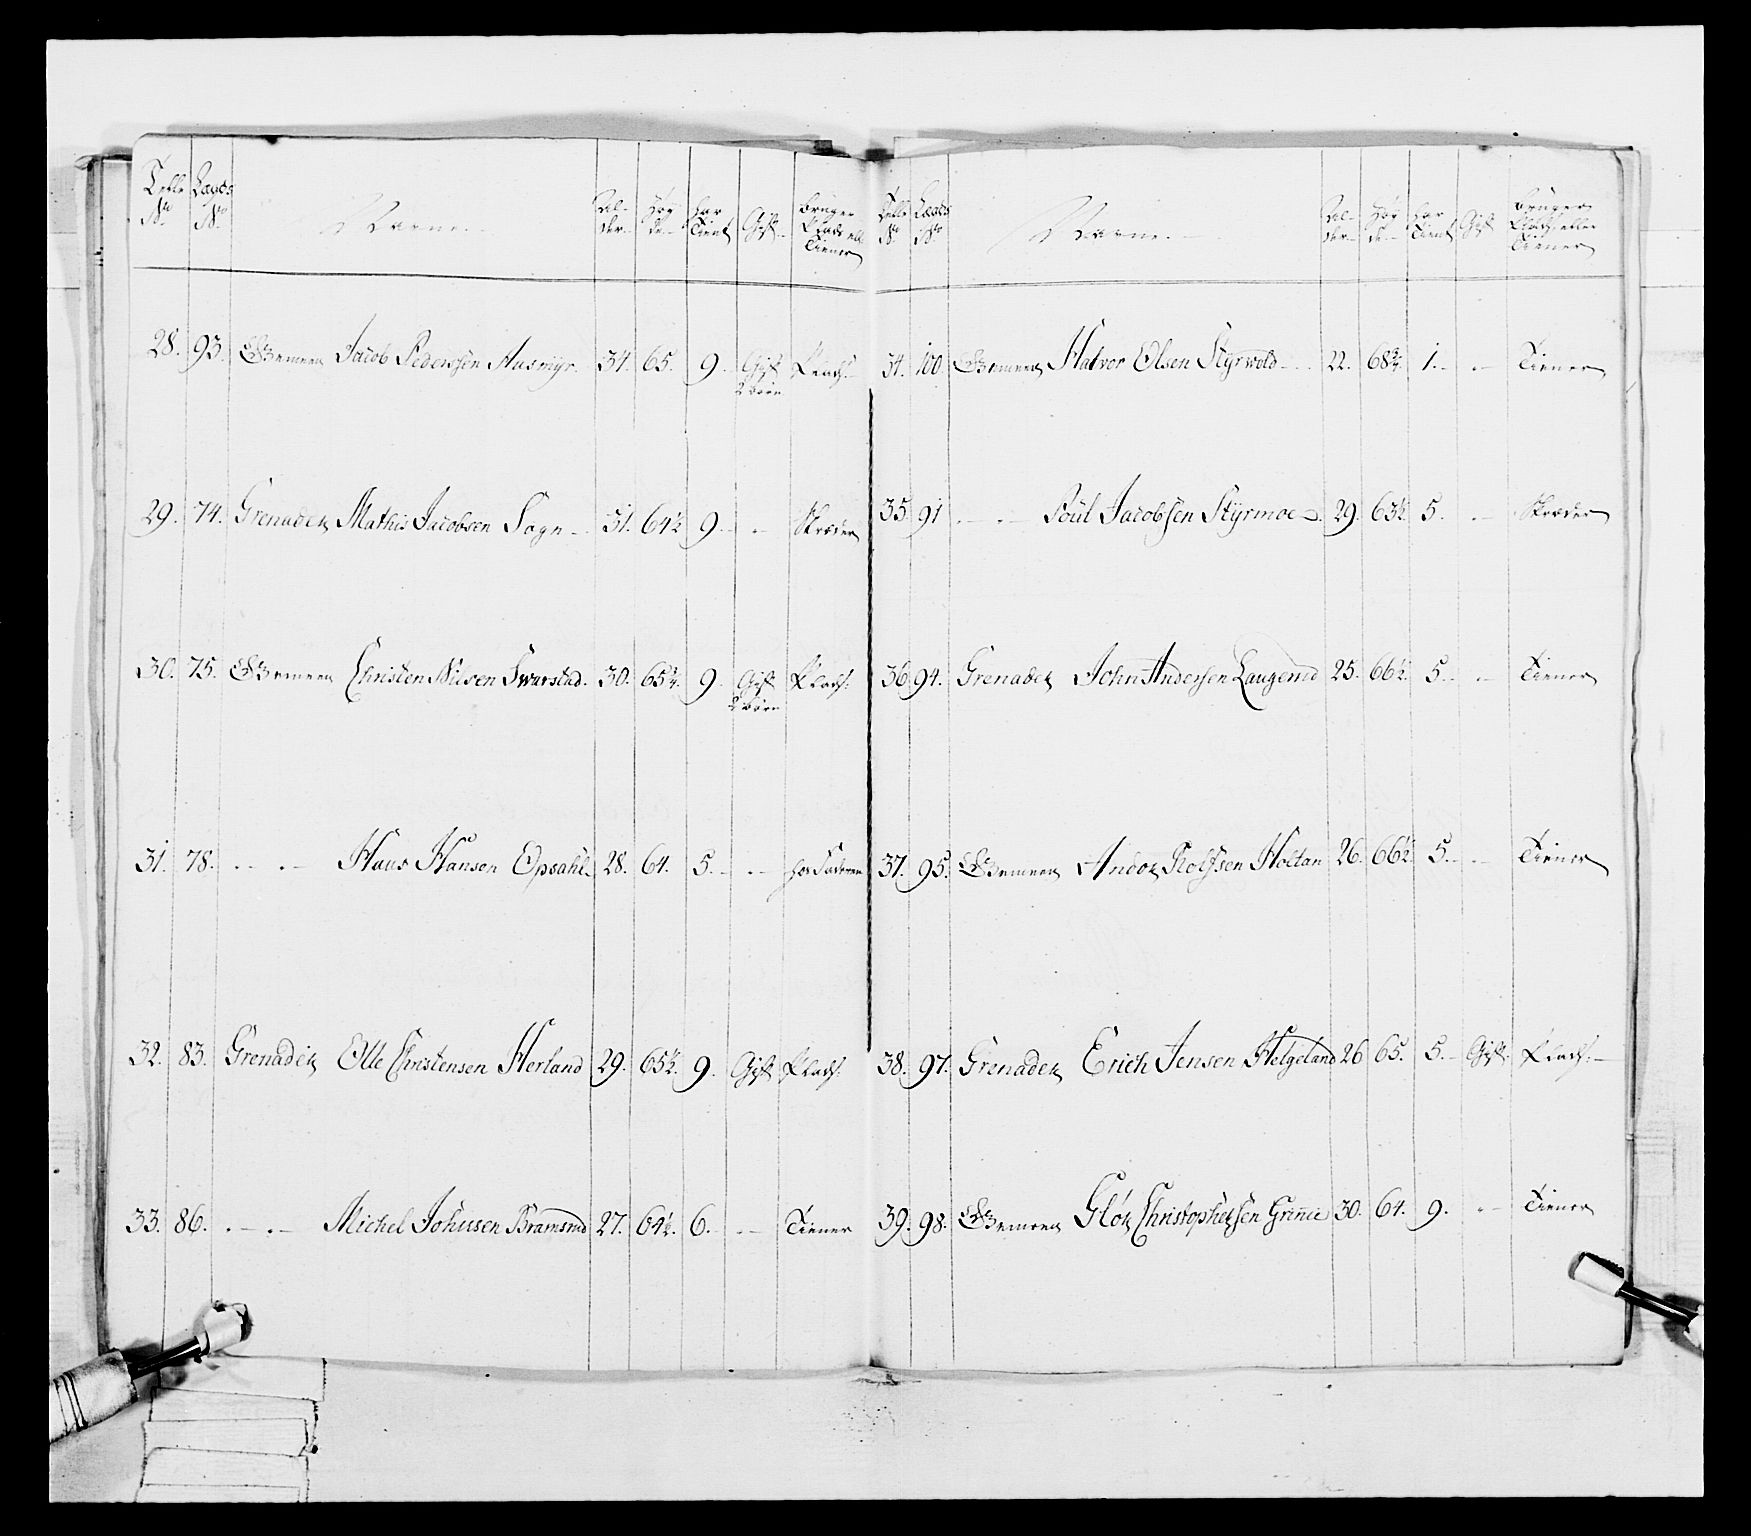 Telle No Lands No Navne Al- der Høy de har Tient Gift bruger Plads ell Tiener
28. 93. Gemeen Jacob Pederssen Husmyr. 34. 65. 9. Gift Plads.
2 børn
29. 74. Grenader Mathis Jacobsen Sogn 31. 64½ 9. Skræder
30. 75. Gemeen Christen Nilsen Swarstad. 30. 65¾. 9. Gift Plads.
2 børn
31. 78. Hans Hansen Opsahl 28. 64. 5. hos Faderen
32. 83. Grenader Olle Christensen Herland 29. 65½. 9. Gift Plads.
33. 86. Michel Johnsen Bramsrud 27. 64½. 6. Tiener
Telle No Lands No Navne Al- der Høy de har Tient Gift bruger Plads eller Tiener
34. 100. Gemeen Halvor Olsen Styrwold 22. 68¾. 1. Tiener
35. 91 Poul Jacobsen Styrmoe 29. 63½. 5. Skræder
36. 94. Grenader John Andersen Laugerud 25. 66½. 5. Tiener
37. 95. Gemeen Andor Rolfsen Holtan 26. 66½. 5. Tiener
38. 97. Grenader Erich Jensen Helgeland 26 65. 5. Gift Plads.
39. 98. Gemeen Glör Christophersen Grinie 30. 64. 9. Tiener